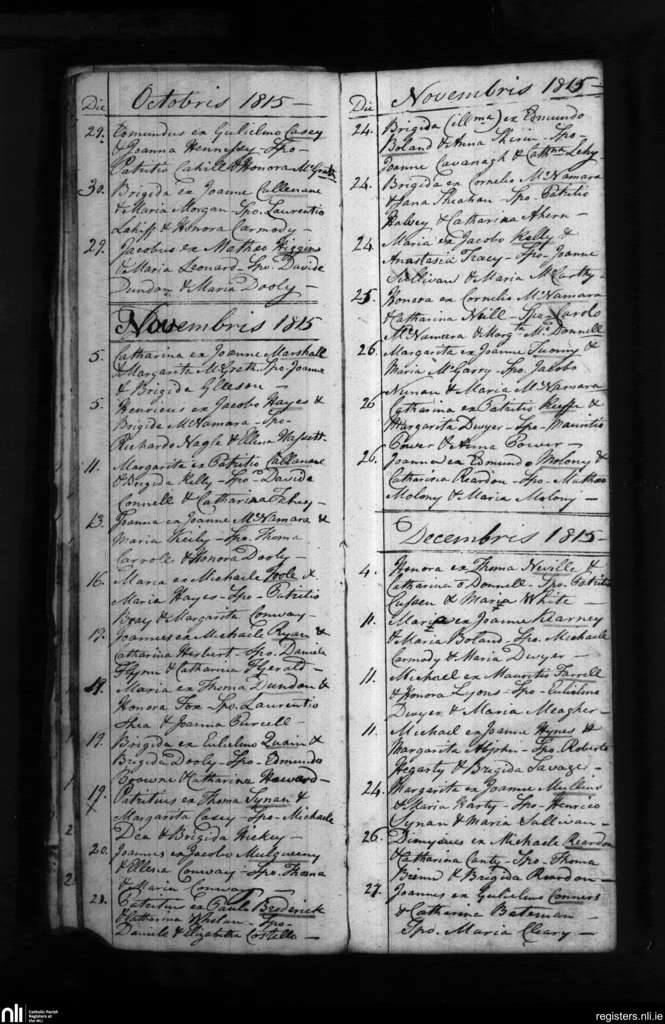 Die Octobris 1815 —
29. Edmundus ex Gulielmo Casey
& Joanna Hennessy - Spo -
Patritio Cahill & Honora McGrath
30. Brigida ex Joanne Cullenane
& Maria Morgan - Spo. Laurentio
Lahiff & Honora Carmody -
29. Jacobus ex Matheo Higgins
& Maria Leonard - Spo. Davide
Dundon & Maria Dooly -
Novembris 1815
5. Catharina ex Joanne Marshall
& Margarita McGrath Spo. Joanne
& Brigida Gleeson -
5. Henricus ex Jacobo Hayes &
Brigida McNamara - Spo -
Richardo Nagle & Ellena
11. Margarita ex Patritio Callanane
& Brigida Kelly - Spo - Davide
Connell & Catharina Fahey -
13. Joanna ex Joanne McNamara &
Maria - Spo. Thoma
Carroll & Honora Dooly -
16. Maria ex Michaele Toole &
Maria Hayes - Spo - Patritio
Bray & Margarita Conway -
17. Joannes ex Michaele Ryan &
Catharina Herbert - Spo. Daniele
Flynn & Catharina Fgerald -
18. Maria ex Thoma Dundon &
Honora Fox - Spo. Laurentio
Shea & Joanna Purcell -
19. Brigida ex Gulielmo Quain &
Brigida Dooly - Spo - Edmundo
Browne & Catharina Howard -
19. Patritius ex Thoma Synan &
Margarita Casey - Spo - Michaele
Dea & Brigida Hickey -
20. Joannes ex Jacobo Mulqueeny
& Ellena Conway - Spo. Thoma
& Maria Conway -
Patritius ex Paulo Broderick
& Catharina Whelan - Spo -
Daniele & Elizabetha Costello -
Die Novembris 1815 —
24. Brigida (illma) ex Edmundo
Boland & Anna - Spo -
Joanne Cavanagh & Catha Leahy
24. Brigida ex Cornelio McNamara
& Jana Sheahan - Spo - Patritio
Halvey & Catharina Ahern -
24 Maria ex Jacobo Kelly &
Anastasia Tracy - Spo - Joanne
Sullivan & Maria McCarthy -
25. Honora ex Cornelio McNamara
& Catharina Neill - Spo - Carolo
McNamara & Margta McDonnell
26. Margarita ex Joanne Twomy &
Maria McGarry - Spo. Jacobo
Nunan & Maria McNamara
26 Catharina ex Patritio Keeffe &
Margarita Dwyer - Spo - Mauritio
Power & Anna Power -
26. Joanna ex Edmundo Molony &
Catharina Reardon - Spo - Matheo
Molony & Maria Molony -
Decembris 1815 -
4. Honora ex Thoma Neville &
Catharina O Donnell - Spo. Patritio
Cussen & Maria White -
11. Maria ex Joanne Kearney
& Maria Boland - Spo. Michaele
Carmody & Maria Dwyer -
11. Michael ex Mauritio Farrell
& Honora Lyons - Spo - Gulielmo
Dwyer & Maria Meagher -
11. Michael ex Joanne Hynes &
Margarita - Spo. Roberto
Hegarty & Brigida Savage -
24. Margarita ex Joanne Mullins
& Maria Harty - Spo - Henrico
Synan & Maria Sullivan -
26. Dionysius ex Michaele Reardon
& Catharina Canty - Spo. Thoma
& Brigida Reardon -
27. Joannes ex Gulielmo Conners
& Catharina Bateman -
Spo. Maria Cleary -
nli Catholic Parish
Registers at
the NLI
registers.nli.ie